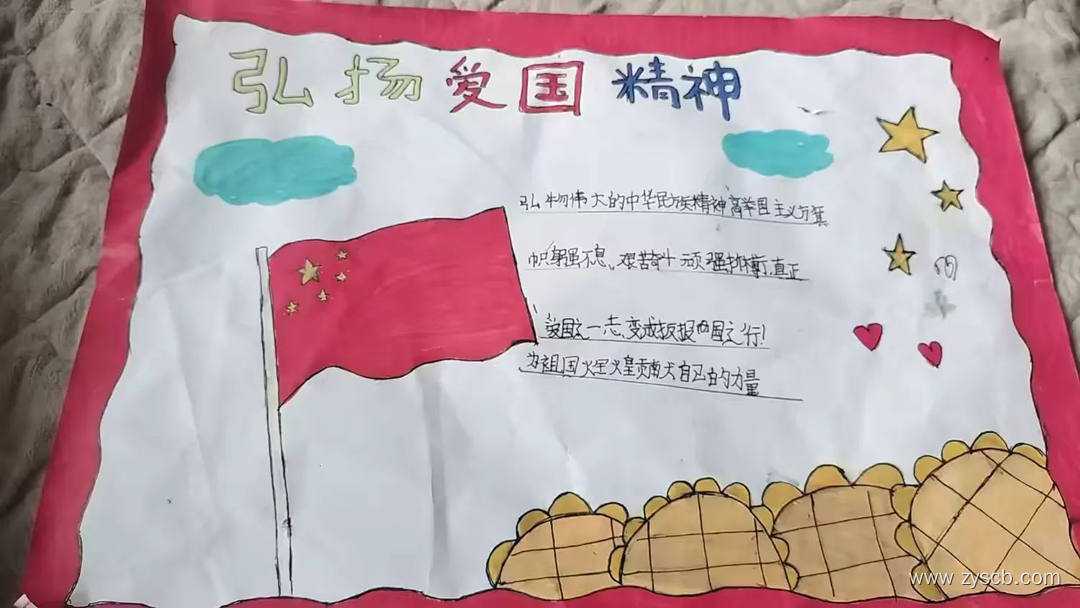 弘扬爱国精神
弘扬伟大的中华民族精神高举国主义方
帜自强不息、艰苦奋斗顽强拼搏,真正
爱国之一志,变成报国之行!
为祖国 贡献自己的力量
www.zyscb.com